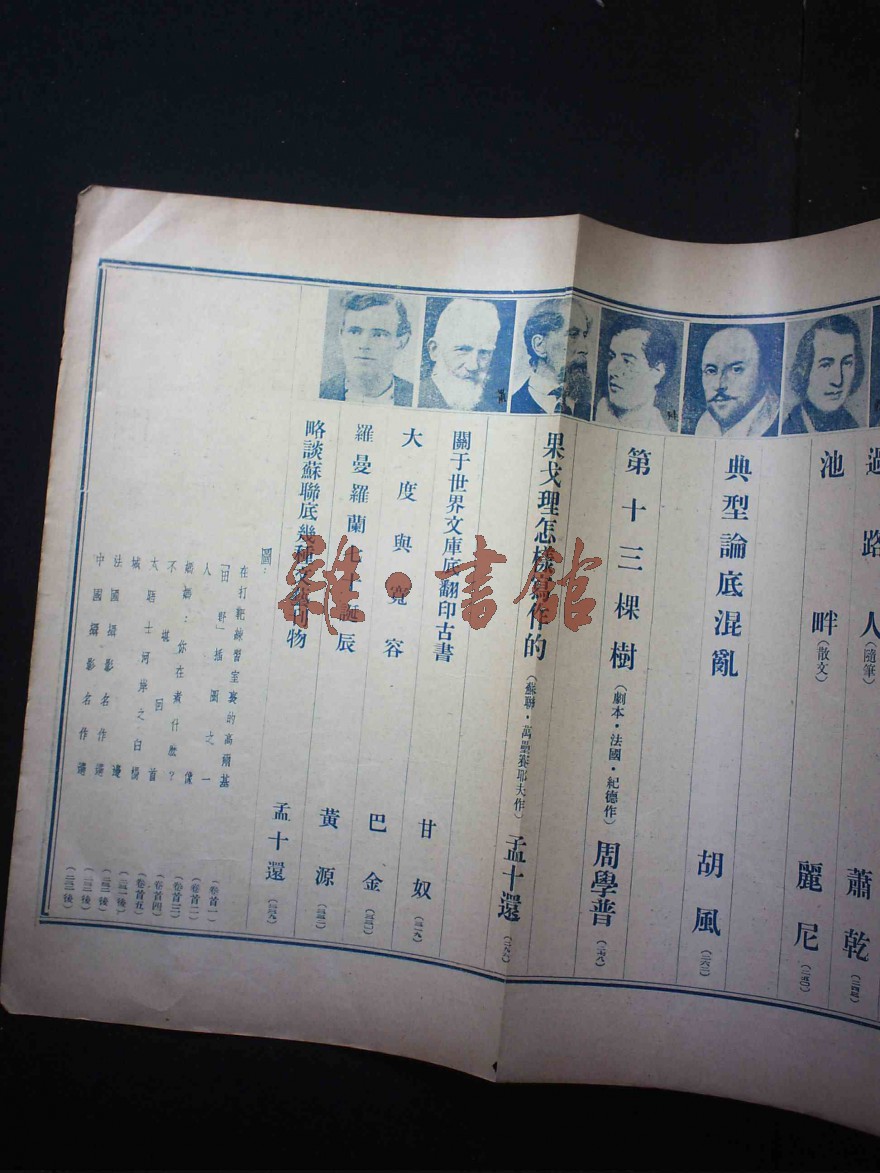 過路人（隨筆） 蕭乾
池畔（散文） 麗尼（二五〇）
典型論底混亂 胡風（二六二）
第十三棵樹（劇本・法國・紀德作） 周學普（二七八）
果戈理怎樣寫作的（蘇聯・萬壘賽耶夫作） 孟十還
關于世界文庫底翻印古書 甘奴
大度與寬容 巴金
羅曼羅蘭七十誕辰 黃源
略談蘇聯底幾種文藝刊物 孟十還
圖：
在打靶練習室裏的高爾基（卷首一）
「田野」插圖之一（卷首二）
人像（卷首三）
媽媽：你在煮什麼？（卷首四）
不堪回首（卷首五）
太晤士河岸之白楊
法國攝影名作選
中國攝影名作選
雜・書館